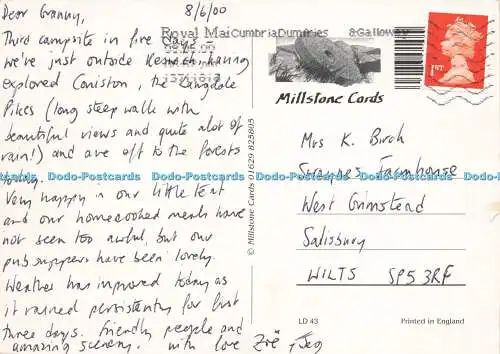 Dear Granny, 8/6/00
Third campsite in five days
we've just outside Keswick having
explored Coniston, the Langdale
Pikes (long steep walk with
beautiful views and quite alot of
rain!) and are off to the forests
today.
Very happy in our little tent
and our homecooked meals have
not seen too awful, but our
pub suppers have been lovely.
Weather has improved today as
it rained persistently for last
three days. Friendly people and
amazing scenery. With love Zoë
Royal Mail Cumbria Dumfries & Galloway
13711018
Millstone Cards
1ST
© Millstone Cards 01629 825605
Mrs K. Birch
Farmhouse
West Grimstead
Salisbury
WILTS SP5 3RF
LD 43
Printed in England
Dodo-Postcards Dodo-Postcards Dodo-Postcards Dodo-Postcards Dodo-Postcards